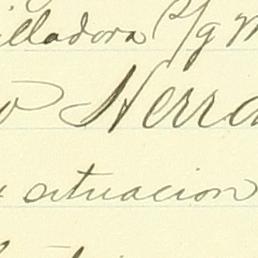 illadora s/g M
o Herra
situacion